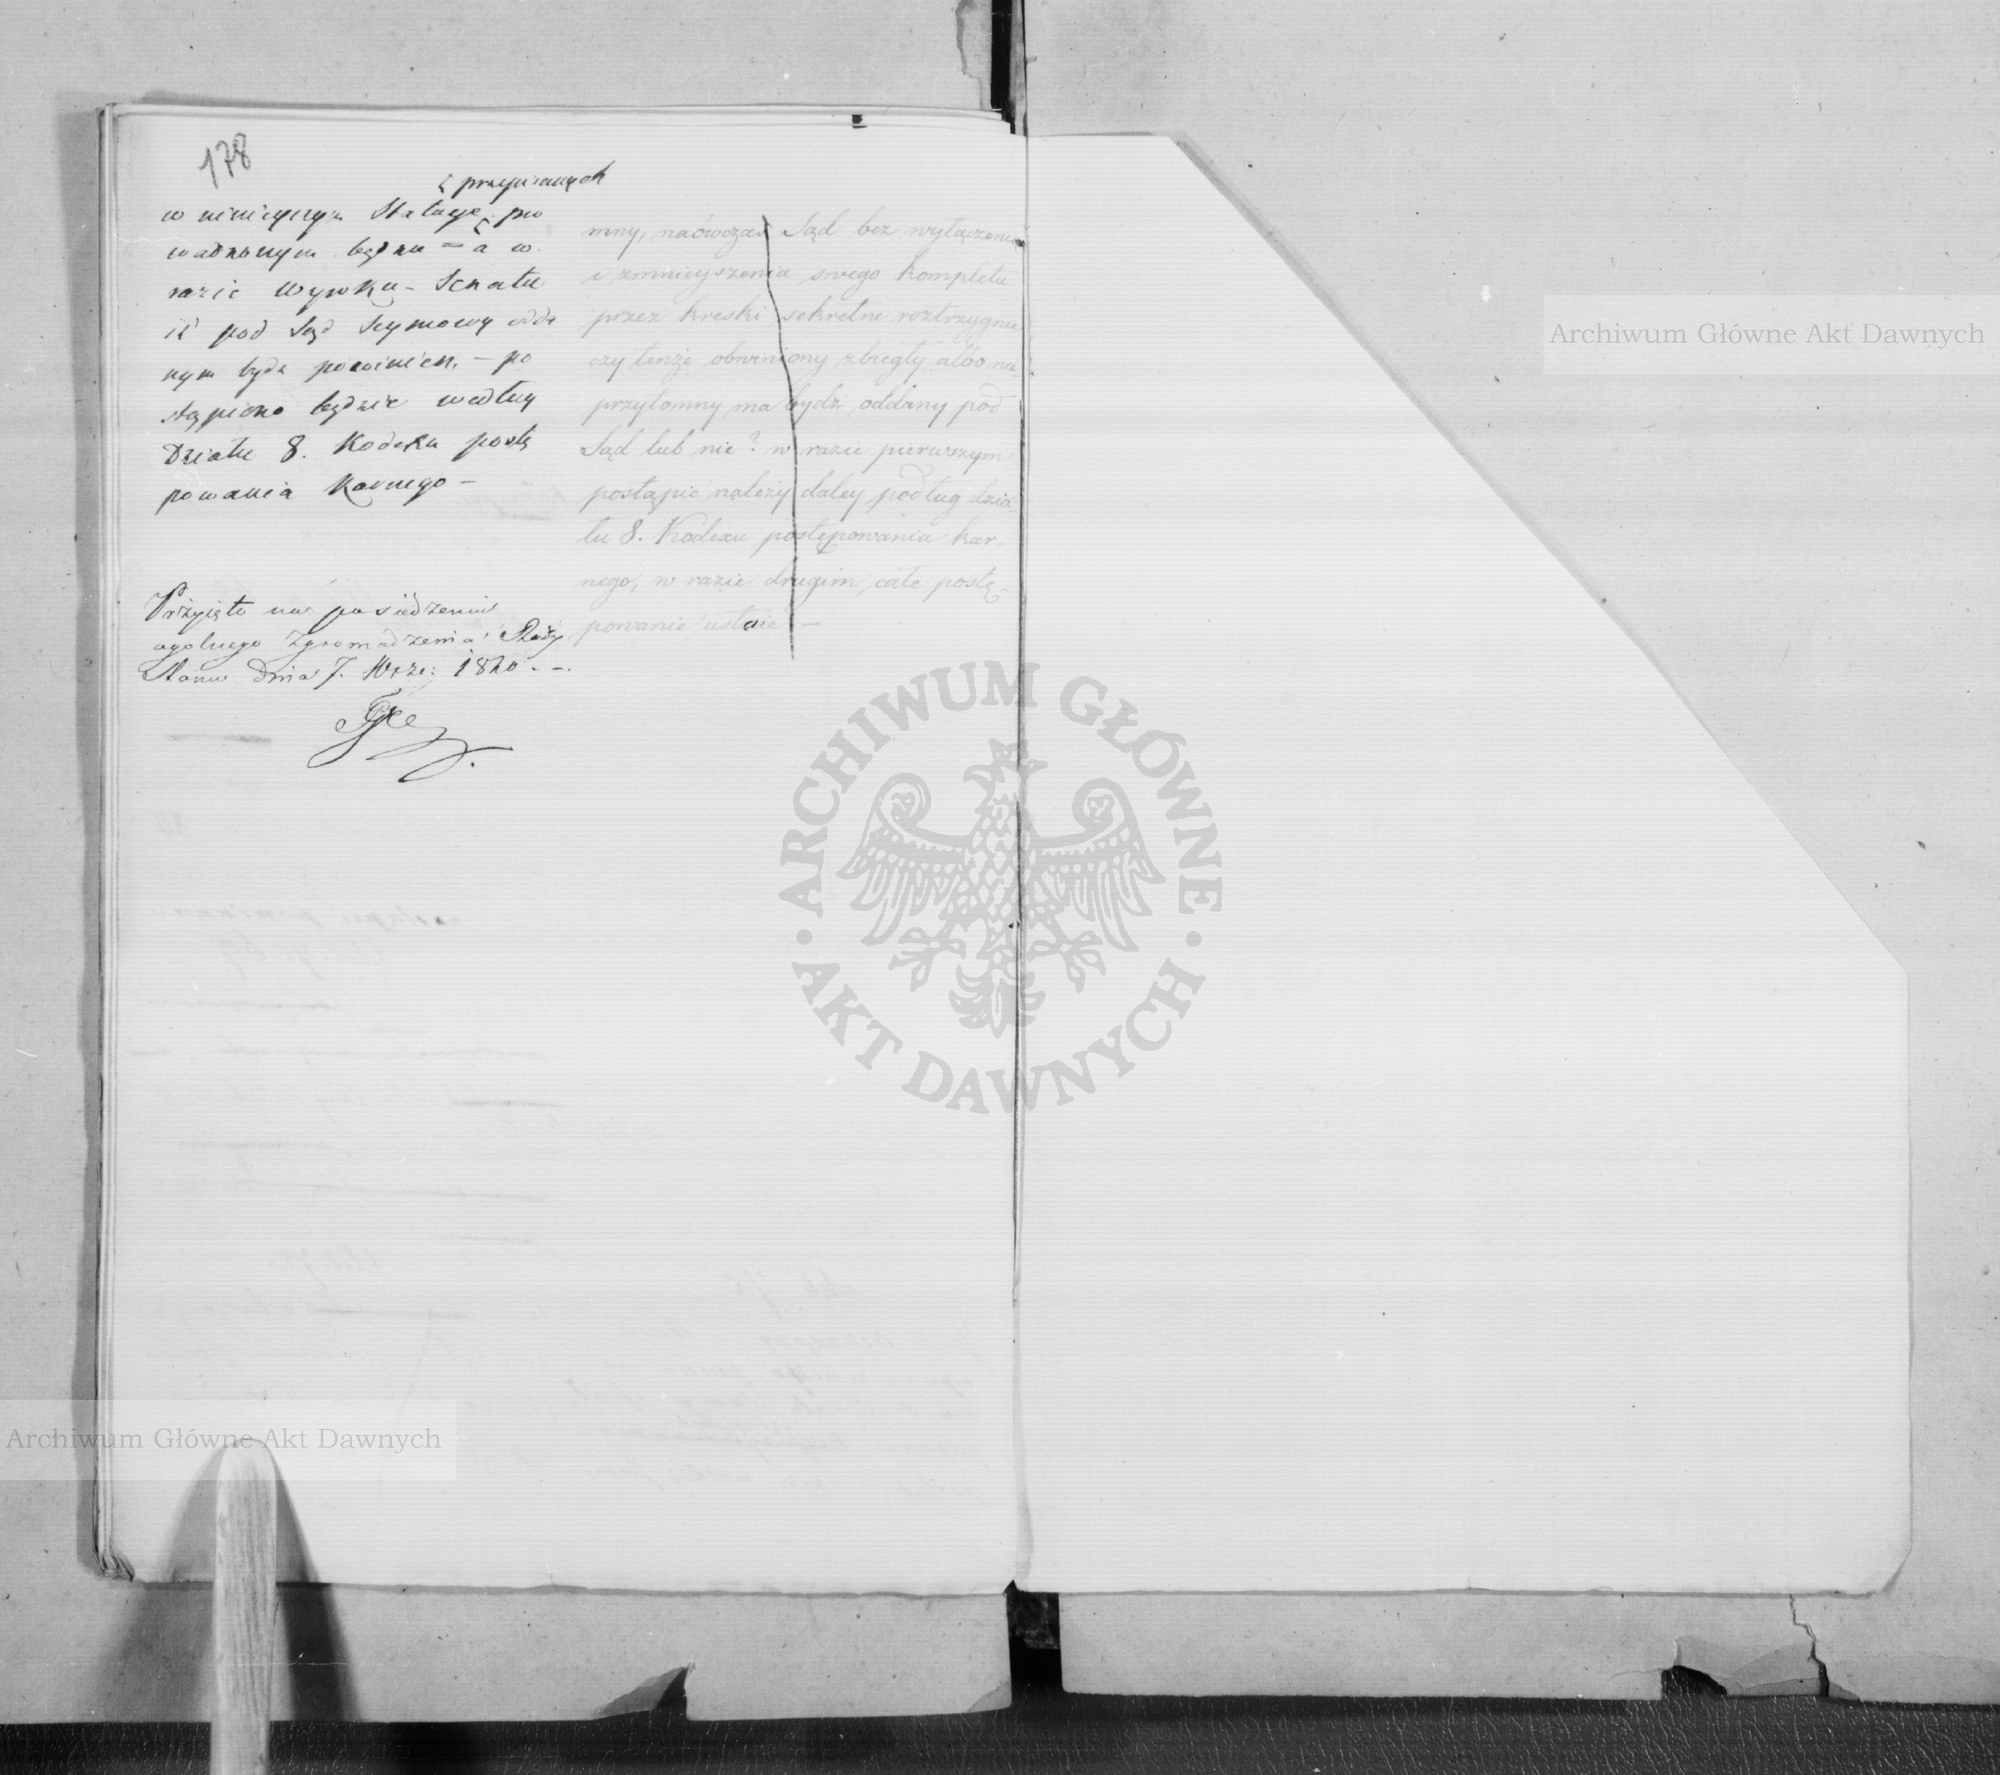 178
przepisanych
w ninieyszym Statucie pro
wadzonym będzie = a w
razie wyroku Senatu
iż pod Sąd Seymowy odda
nym bydź powinien, – po
stąpiono będzie według
Działu 8. Kodexu postę
powania Karnego –
Przyięto na posiedzeniu
ogolnego Zgromadzenia Rady
Stanu dnia 7. Wrze: 1820 - -.
mny, naówczas Sąd bez wyłączenia
i zmnieyszenia swego kompletu
przez kreski sekretne roztrzygnie
czy tenże obwiniony zbiegły albo nie-
przytomny ma bydź oddany pod
Sąd lub nie? w razie pierwszym
postąpić należy daley podług dzia-
łu 8. Kodexu postępowania kar-
nego, w razie drugim całe postę-
powanie ustaie –
Archiwum Główne Akt Dawnych
ARCHIWUM GŁÓWNE
AKT DAWNYCH
Archiwum Główne Akt Dawnych